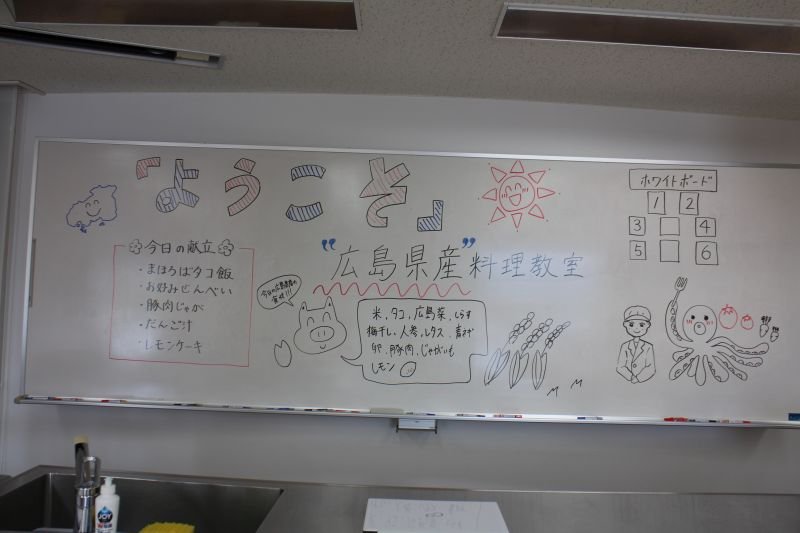 「ようこそ」
"広島県産"料理教室
今日の献立
・まほろばタコ飯
・お好みせんべい
・豚肉じゃが
・だんご汁
・レモンケーキ
米、タコ、広島菜、しらす
梅干し、人参、レタス、青ネギ
卵、豚肉、じゃがいも
レモン
ホワイトボード
1 2
3 4
5 6
JOY